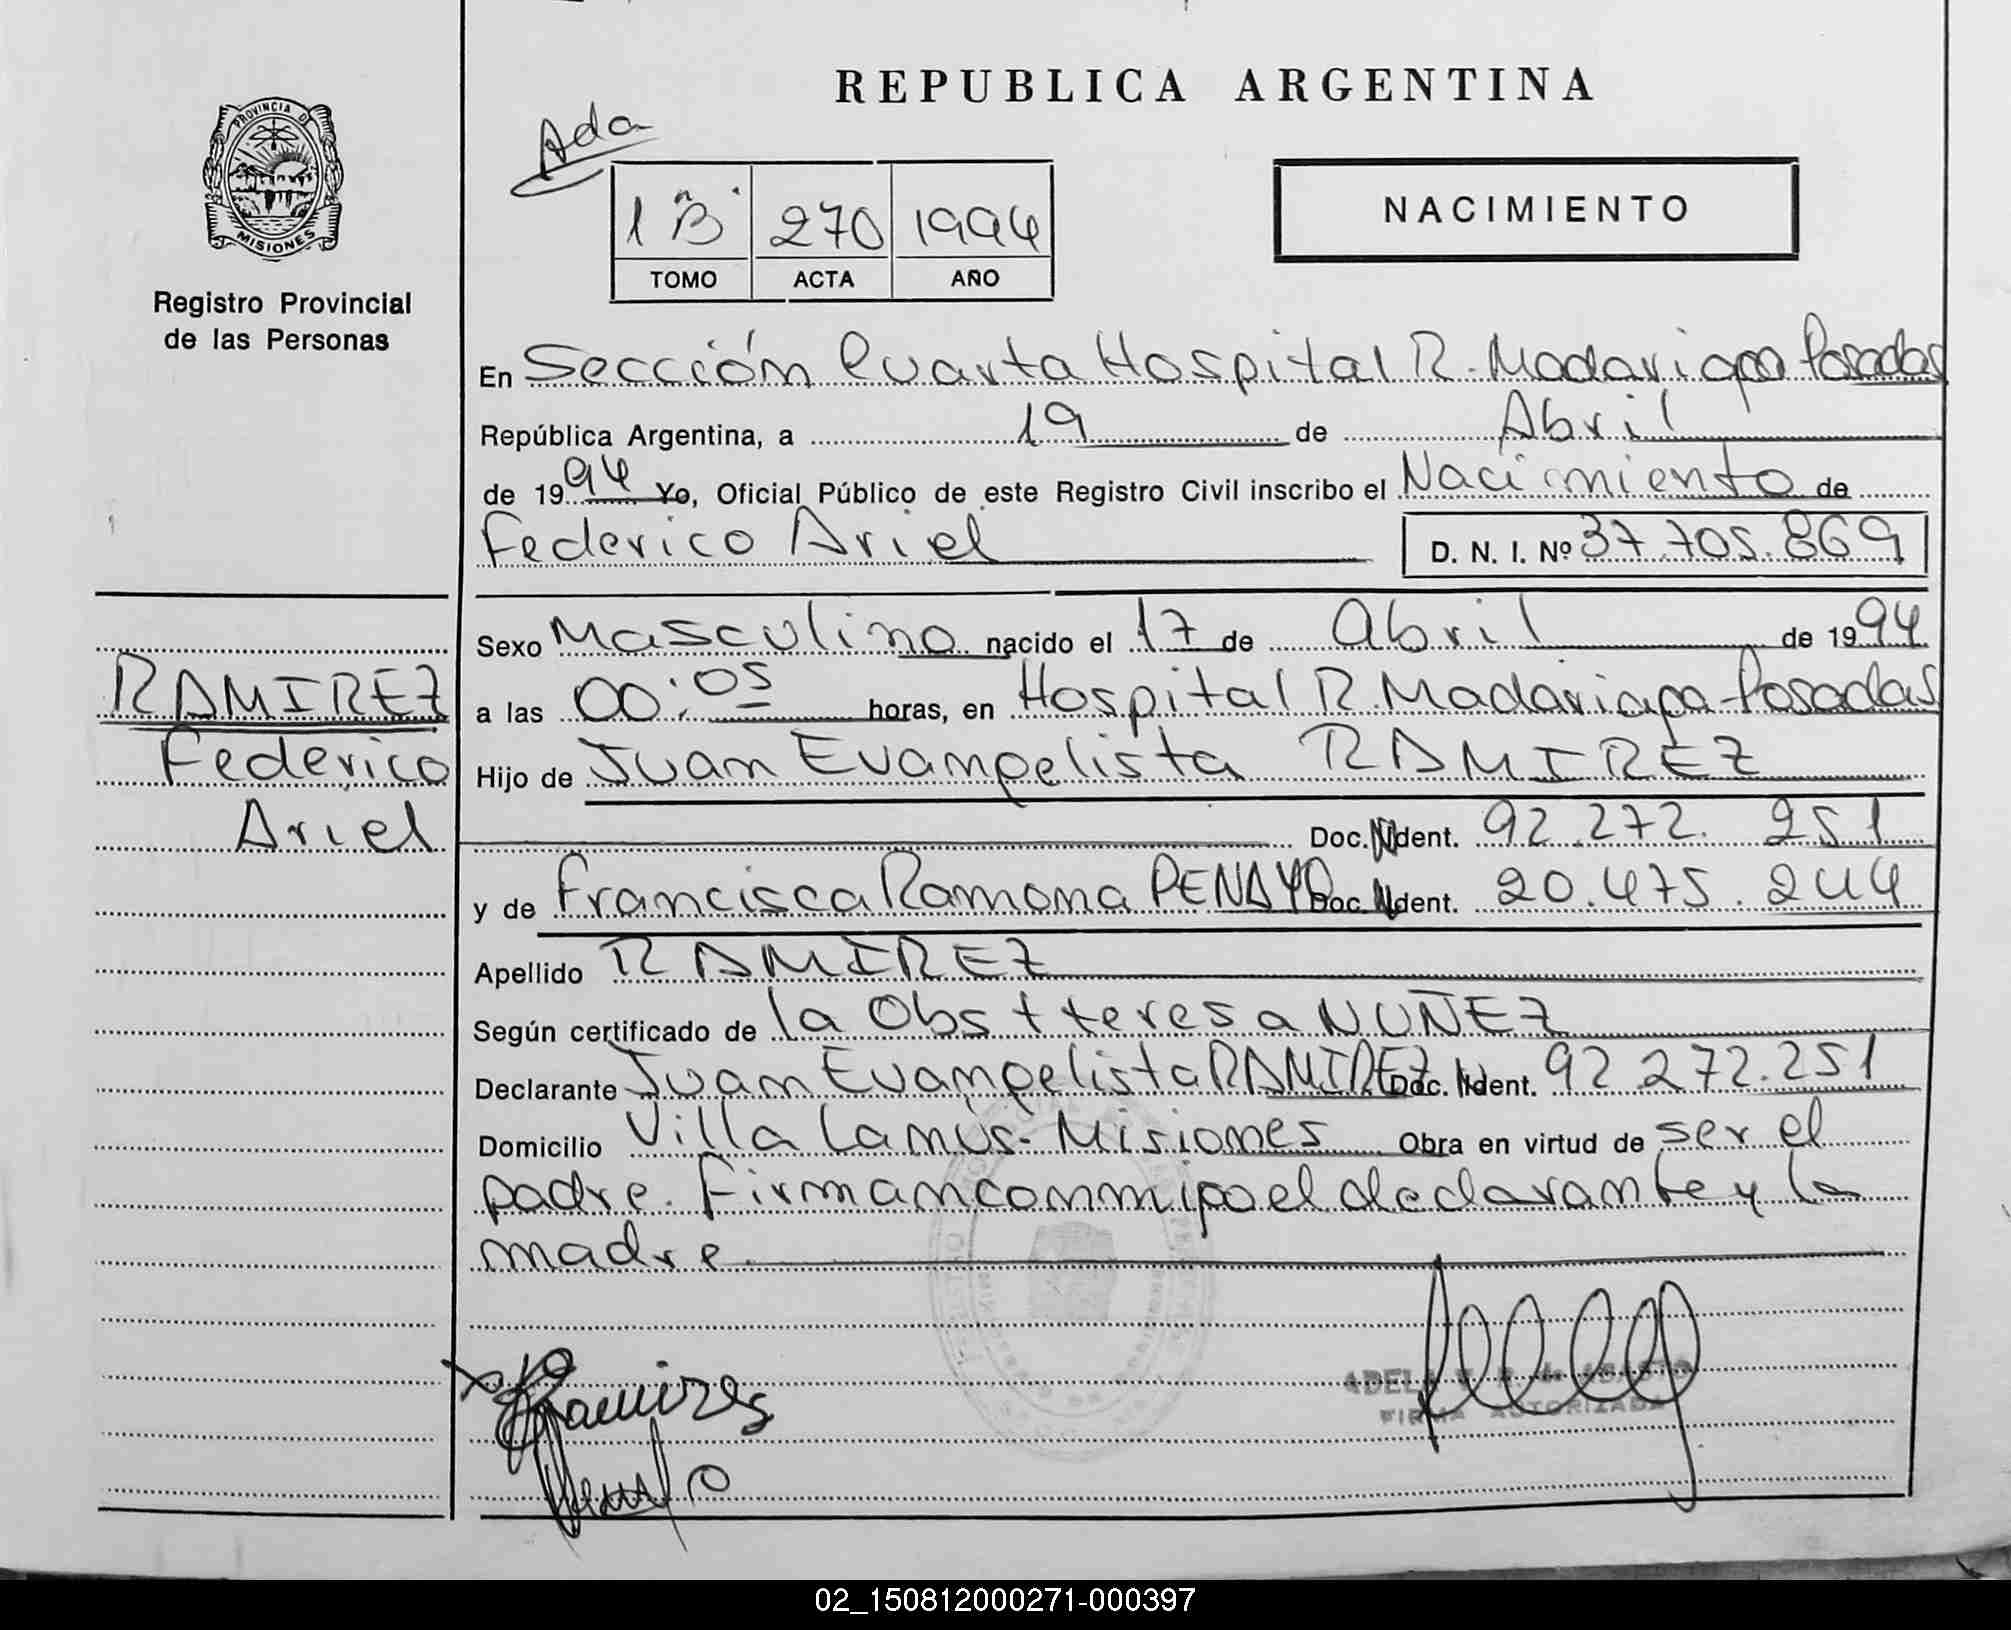 REPUBLICA ARGENTINA
Ada
PROVINCIA D
MISIONES
Registro Provincial
de las Personas
1 B 270 1994
TOMO ACTA AÑO
NACIMIENTO
En Sección Cuarta Hospital R. Madariaga Posadas
República Argentina, a 19 de Abril
de 1994 Yo, Oficial Público de este Registro Civil inscribo el Nacimiento de
Federico Ariel D. N. I. Nº 37.705.869
Sexo Masculino nacido el 17 de Abril de 1994
RAMIREZ
Federico
Ariel
a las 00:05 horas, en Hospital R. Madariaga-Posadas
Hijo de Juan Evangelista RAMIREZ
Doc. Ident. 92.272.251
y de Francisca Ramona PENAYO Doc. Ident. 20.475.244
Apellido RAMIREZ
Según certificado de la Obst teresa NUÑEZ
Declarante Juan Evangelista RAMIREZ Doc. Ident. 92 272.251
Domicilio Villa Lanús-Misiones Obra en virtud de ser el
padre. Firman conmigo el declarante y la
madre.
Ramirez
ADELA
FIRMA AUTORIZADA
02_150812000271-000397